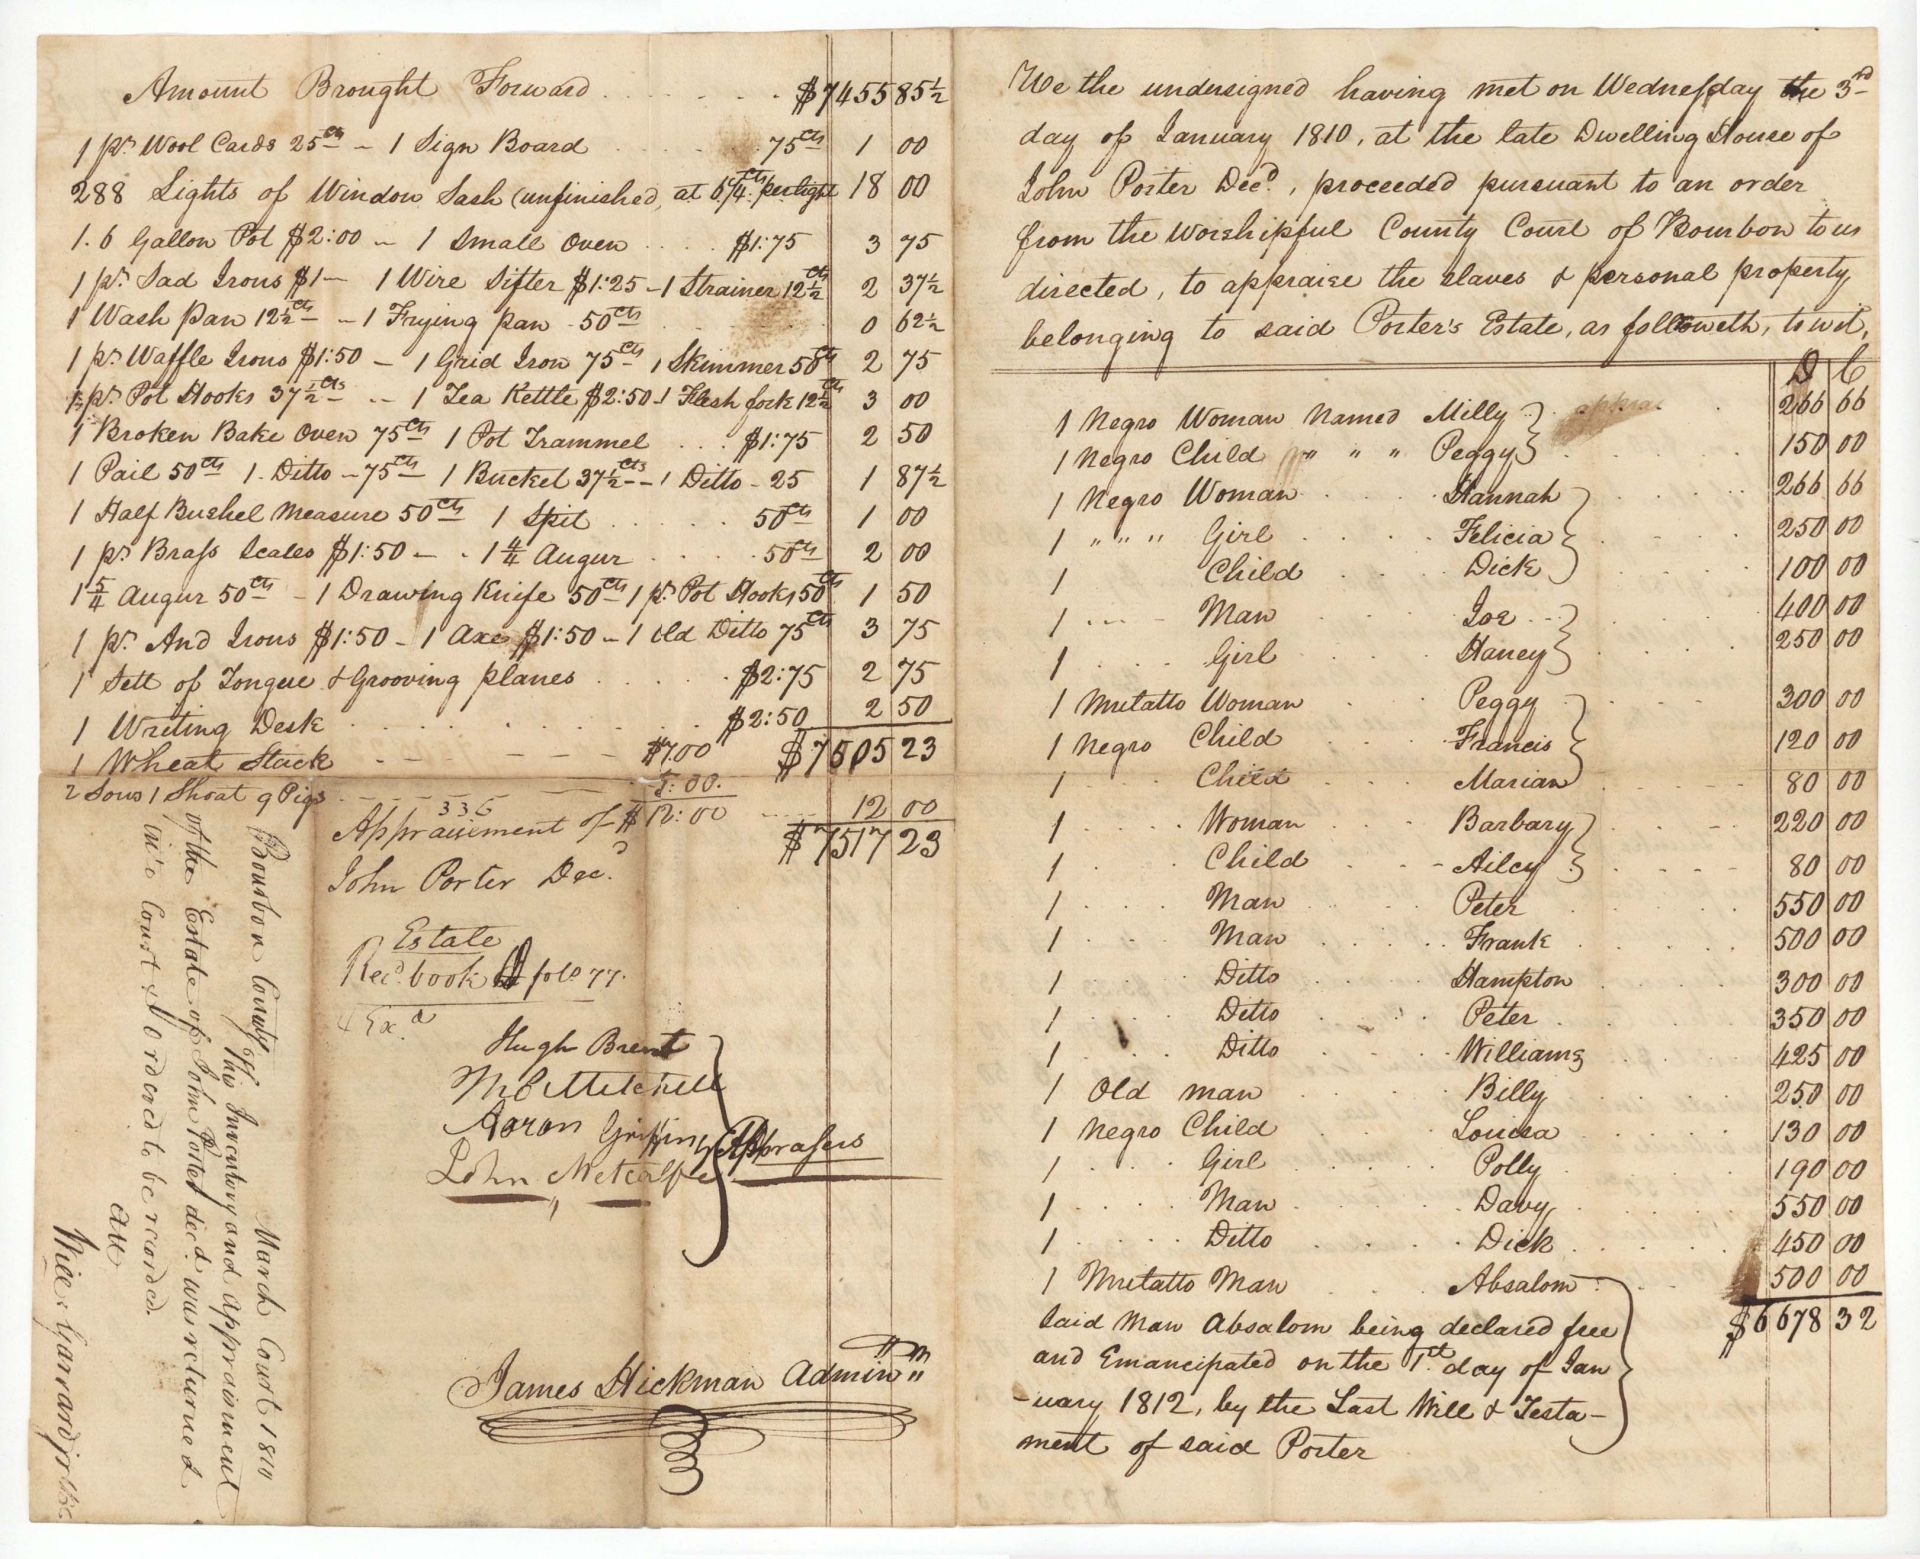 Amount Brought Forward . . . . . . . $7455 85½
1 pr. Wool Cards 25cts – 1 Sign Board . . . . . . . 75cts 1 00
288 Lights of Window Sash (unfinished, at 6¼cts per light 18 00
1. 6 Gallon Pot $2:00 – 1 Small Oven . . . . $1:75 3 75
1 pr. Sad Irons $1 – 1 Wire Sifter $1:25 – 1 Strainer 12½cts 2 37½
1 Wash Pan 12½cts – 1 Frying pan - 50cts . . . . 0 62½
1 pr. Waffle Irons $1:50 – 1 Grid Iron 75cts 1 Skimmer 50cts 2 75
1 pr. Pot Hooks 37½cts – 1 Tea Kettle $2:50 – 1 Flesh fork 12½cts 3 00
1 Broken Bake Oven 75cts 1 Pot Trammel . . . $1:75 2 50
1 Pail 50cts 1. Ditto – 75cts 1 Bucket 37½cts – 1 Ditto - 25 1 87½
1 Half Bushel Measure 50cts 1 Spit . . . . . . 50cts 1 00
1 pr. Brass Scales $1:50 – . 1 4/4 Augur . . . . 50cts 2 00
1 5/4 Augur 50cts – 1 Drawing Knife 50cts 1 pr. Pot Hooks 50cts 1 50
1 pr. And Irons $1:50 – 1 Axe $1:50 – 1 old Ditto 75cts 3 75
1 Sett of Tongue & Grooving planes . . . . . $2:75 2 75
1 Writing Desk . . . . . . . $2:50 2 50
1 Wheat Stack – – – – $7.00 $7505 23
2 Sows 1 Shoat 9 Pigs – – – – – 5:00.
336
$12:00 . . . . 12 00
$7517 23
Appraisement of
John Porter Dec.d
Estate
Rec.d book D folo 77.
Ex.d
Hugh Brent
Aaron Griffing
John Metcalfe
Apprasers
James Hickman Admin
Bourbon County March Court 1810
This Inventory and appraisment
of the Estate of John Porter dec.d was returned
into Court & Ordered to be recorded.
Att
Will. Garrard jr
We the undersigned having met on Wednesday the 3rd
day of January 1810, at the late Dwelling House of
John Porter Decd., proceeded pursuant to an order
from the Worshipful County Court of Bourbon to us
directed, to appraise the slaves & personal property
belonging to said Porter's Estate, as followeth, towit,
D C
1 Negro Woman Named Milly 266 66
1 Negro Child " " " Peggy . . . . . . 150 00
1 Negro Woman . . . . . Hannah . . . . . 266 66
1 " " " Girl . . . . Felicia . . . . 250 00
1 Child . . . . Dick . . . . 100 00
1 . . . - Man . . . . Joe . . . 400 00
1 . . . . Girl . . . . Haney . . . . 250 00
1 Mulatto Woman . . . . Peggy . . . . 300 00
1 Negro Child . . . . Francis . . . . 120 00
1 . . Child . . . . Marian . . . . 80 00
1 . . . . Woman . . . . Barbary . . . . 220 00
1 . . . Child . . . . - Ailcy . . . . 80 00
1 . . . Man . . . . Peter . . . . 550 00
1 . . . Man . . . . . Frank . . . . 500 00
1 . . . . Ditto . . . . Hampton . . . . 300 00
1 . . . . Ditto . . . . Peter . . . . 350 00
1 . . . . Ditto . . . . Williams . . . . 425 00
1 Old man . . . . Billy . . . . 250 00
1 Negro Child . . . . Louisa . . . . 130 00
1 . . . . Girl . . . . Polly . . . . 190 00
1 . . . . Man . . . . Davy . . . . 550 00
1 . . . . Ditto . . . . Dick . . . . 450 00
1 Mulatto Man . . . . Absalom . . . . 500 00
$6678 32
Said Man Absalom being declared free
and Emancipated on the 1st. day of Jan
-uary 1812, by the Last Will & Testa-
ment of said Porter